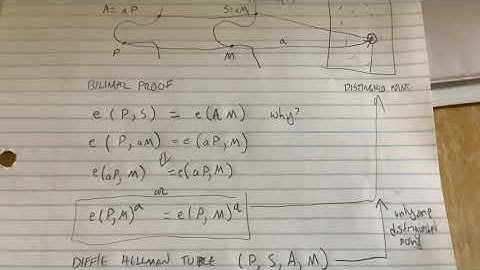 A = aP S = aM
P M a
BILINIAL PROOF
DISTINGUISHED POINT
e(P, S) = e(A M) why?
e(P, aM) = e(aP, M)
e(aP, M) = e(aP, M)
or
e(P, M)^a = e(P, M)^a
only one
distinguished
point
DIFFIE HELLMAN TUPLE (P, S, A, M)